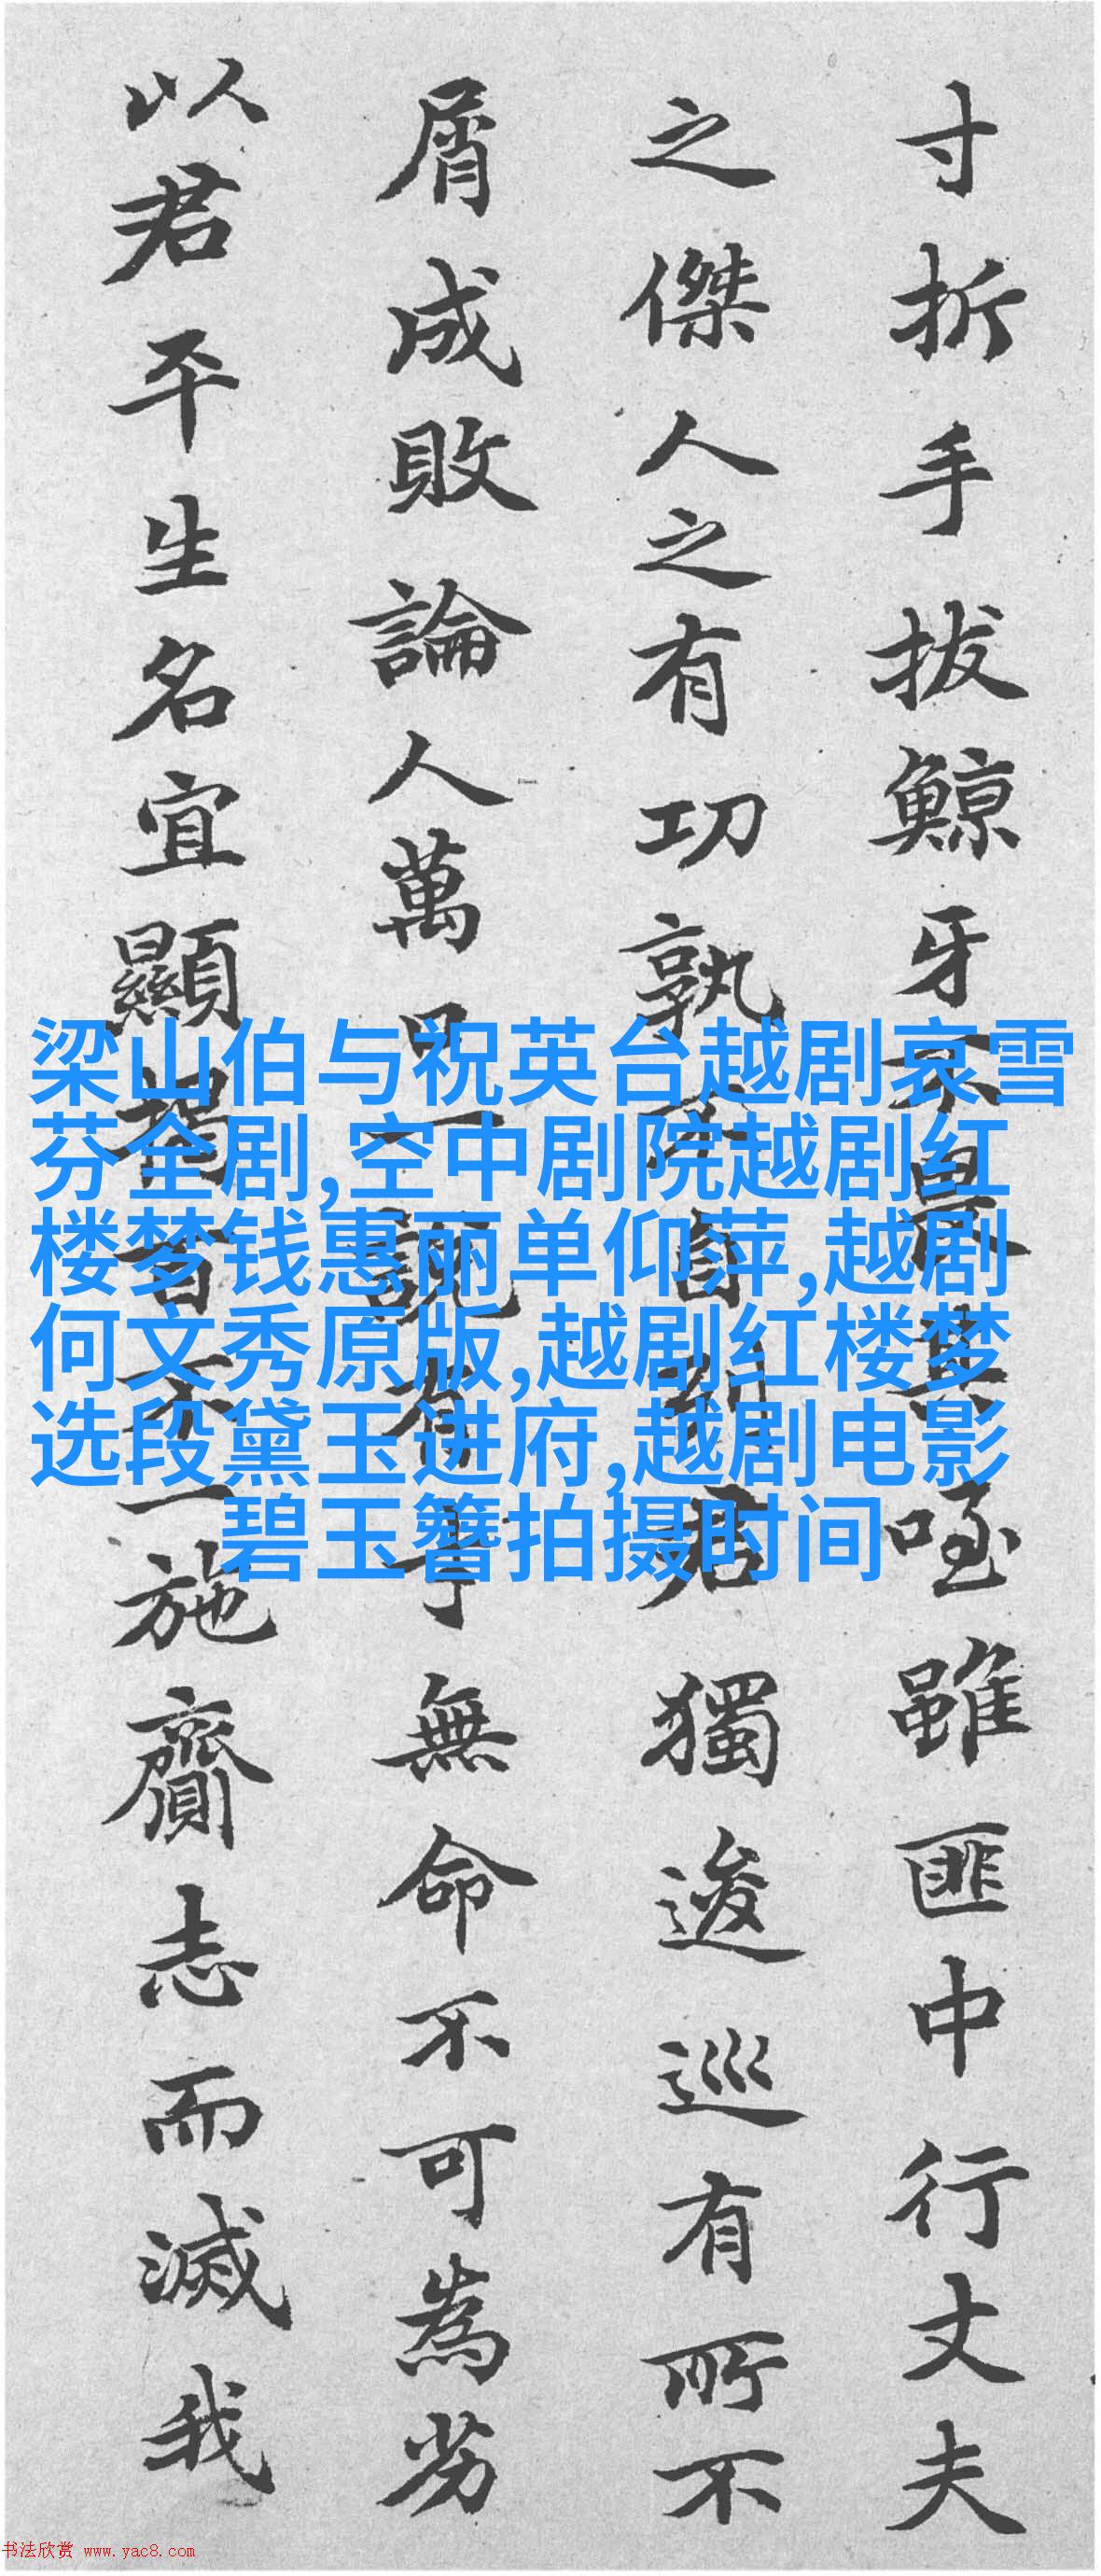 梁山伯与祝英台越剧哀雪
芬全剧,空中剧院越剧红
楼梦钱惠丽单仰萍,越剧
何文秀原版,越剧红楼梦
选段黛玉进府,越剧电影
碧玉簪拍摄时间
寸折手拔鯨牙不畏其咥雖匪中行丈夫
之傑人之有功孰不自列君獨逡巡有所不
屑成敗論人萬口一說有無命不可為
以君平生名宜顯揭百不一施齎志而滅我
书法欣赏 www.yac8.com